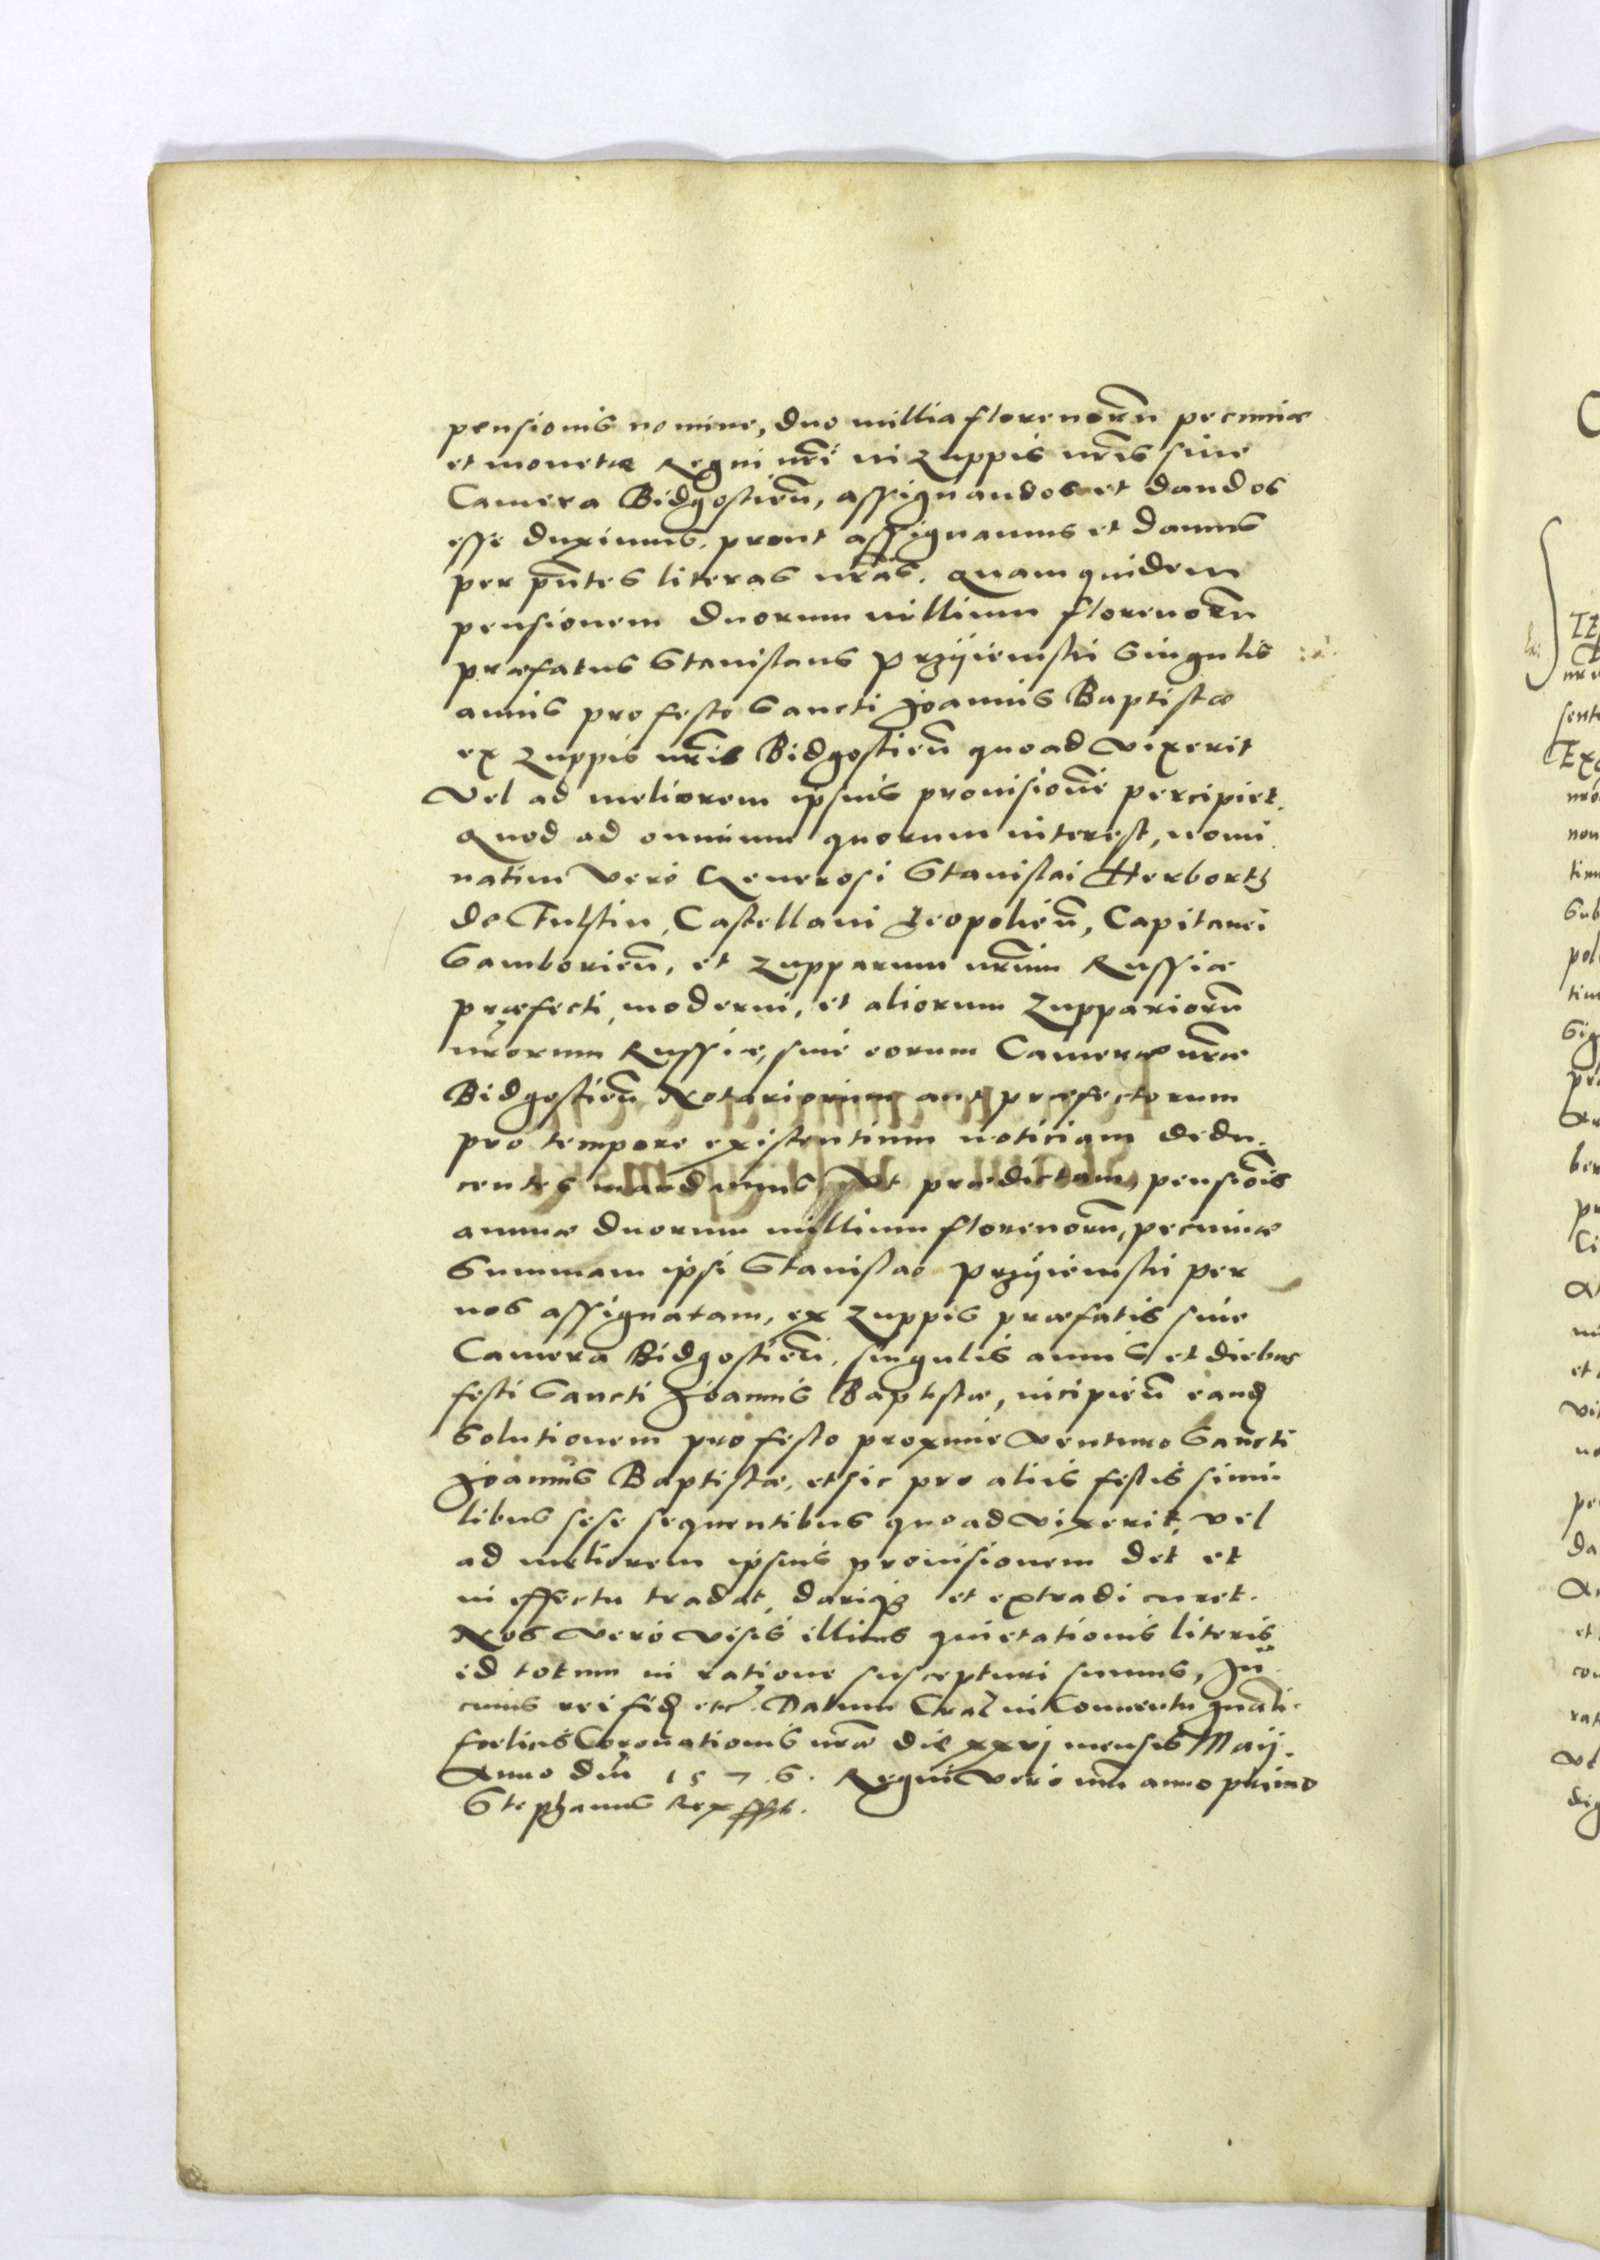 pensionis nomine, duo millia florenorũ pecuniæ
et monetæ Regni nr̃i in Zuppis nr̃is siue
Camera Bidgostieñ, assignandos et dandos
esse duximus. prout assignamus et damus
per pñtes literas nr̃as. Quam quidem
pensionem duorum millium florenorũ
præfatus Stanislaus Przyiemski singulis
annis pro festo Sancti Joannis Baptistæ
ex Zuppis nr̃is Bidgostieñ quoad vixerit
Vel ad meliorem ipsius prouisionẽ percipiet.
Quod ad omnium quorum interest, nomi
natim vero Generosi Stanislai Herborth
de Fulstin, Castellani Leopolieñ, Capitanei
Samborieñ, et Zupparum nr̃arum Russiæ
præfecti moderni, et aliorum Zuppariorũ
nr̃orum Russiæ, siue eorum Cameræ nr̃æ
Bidgostieñ Notariorum aut præfectorum
pro tempore existentium noticiam dedu-
centes mandamus, Vt prædictam pensiõis
annuæ duorum millium florenorũ, pecuniæ
Summam ipsi Stanislao Przyiemski per
nos assignatam, ex Zuppis præfatis siue
Camera Bidgostieñ, singulis annis et diebus
festi Sancti Joannis Baptistæ, incipieñ eand
Solutionem pro festo proxime Venturo Sancti
Joannis Baptistæ, et sic pro aliis festis simi-
libus sese sequentibus quoad vixerit, vel
ad meliorem ipsius prouisionem det et
in effectu tradat, dariq et extradi curet.
Nos vero visis illius quietationis literis
id totum in ratione suscepturi sumus, In
cuius rei fid etc. Datum Crac in Conuentu gñali
fœlicis Coronationis nr̃æ die xxvj mensis Maij.
Anno Dñi 1576. Regni vero nr̃i anno primo
Stephanus Rex sszt.